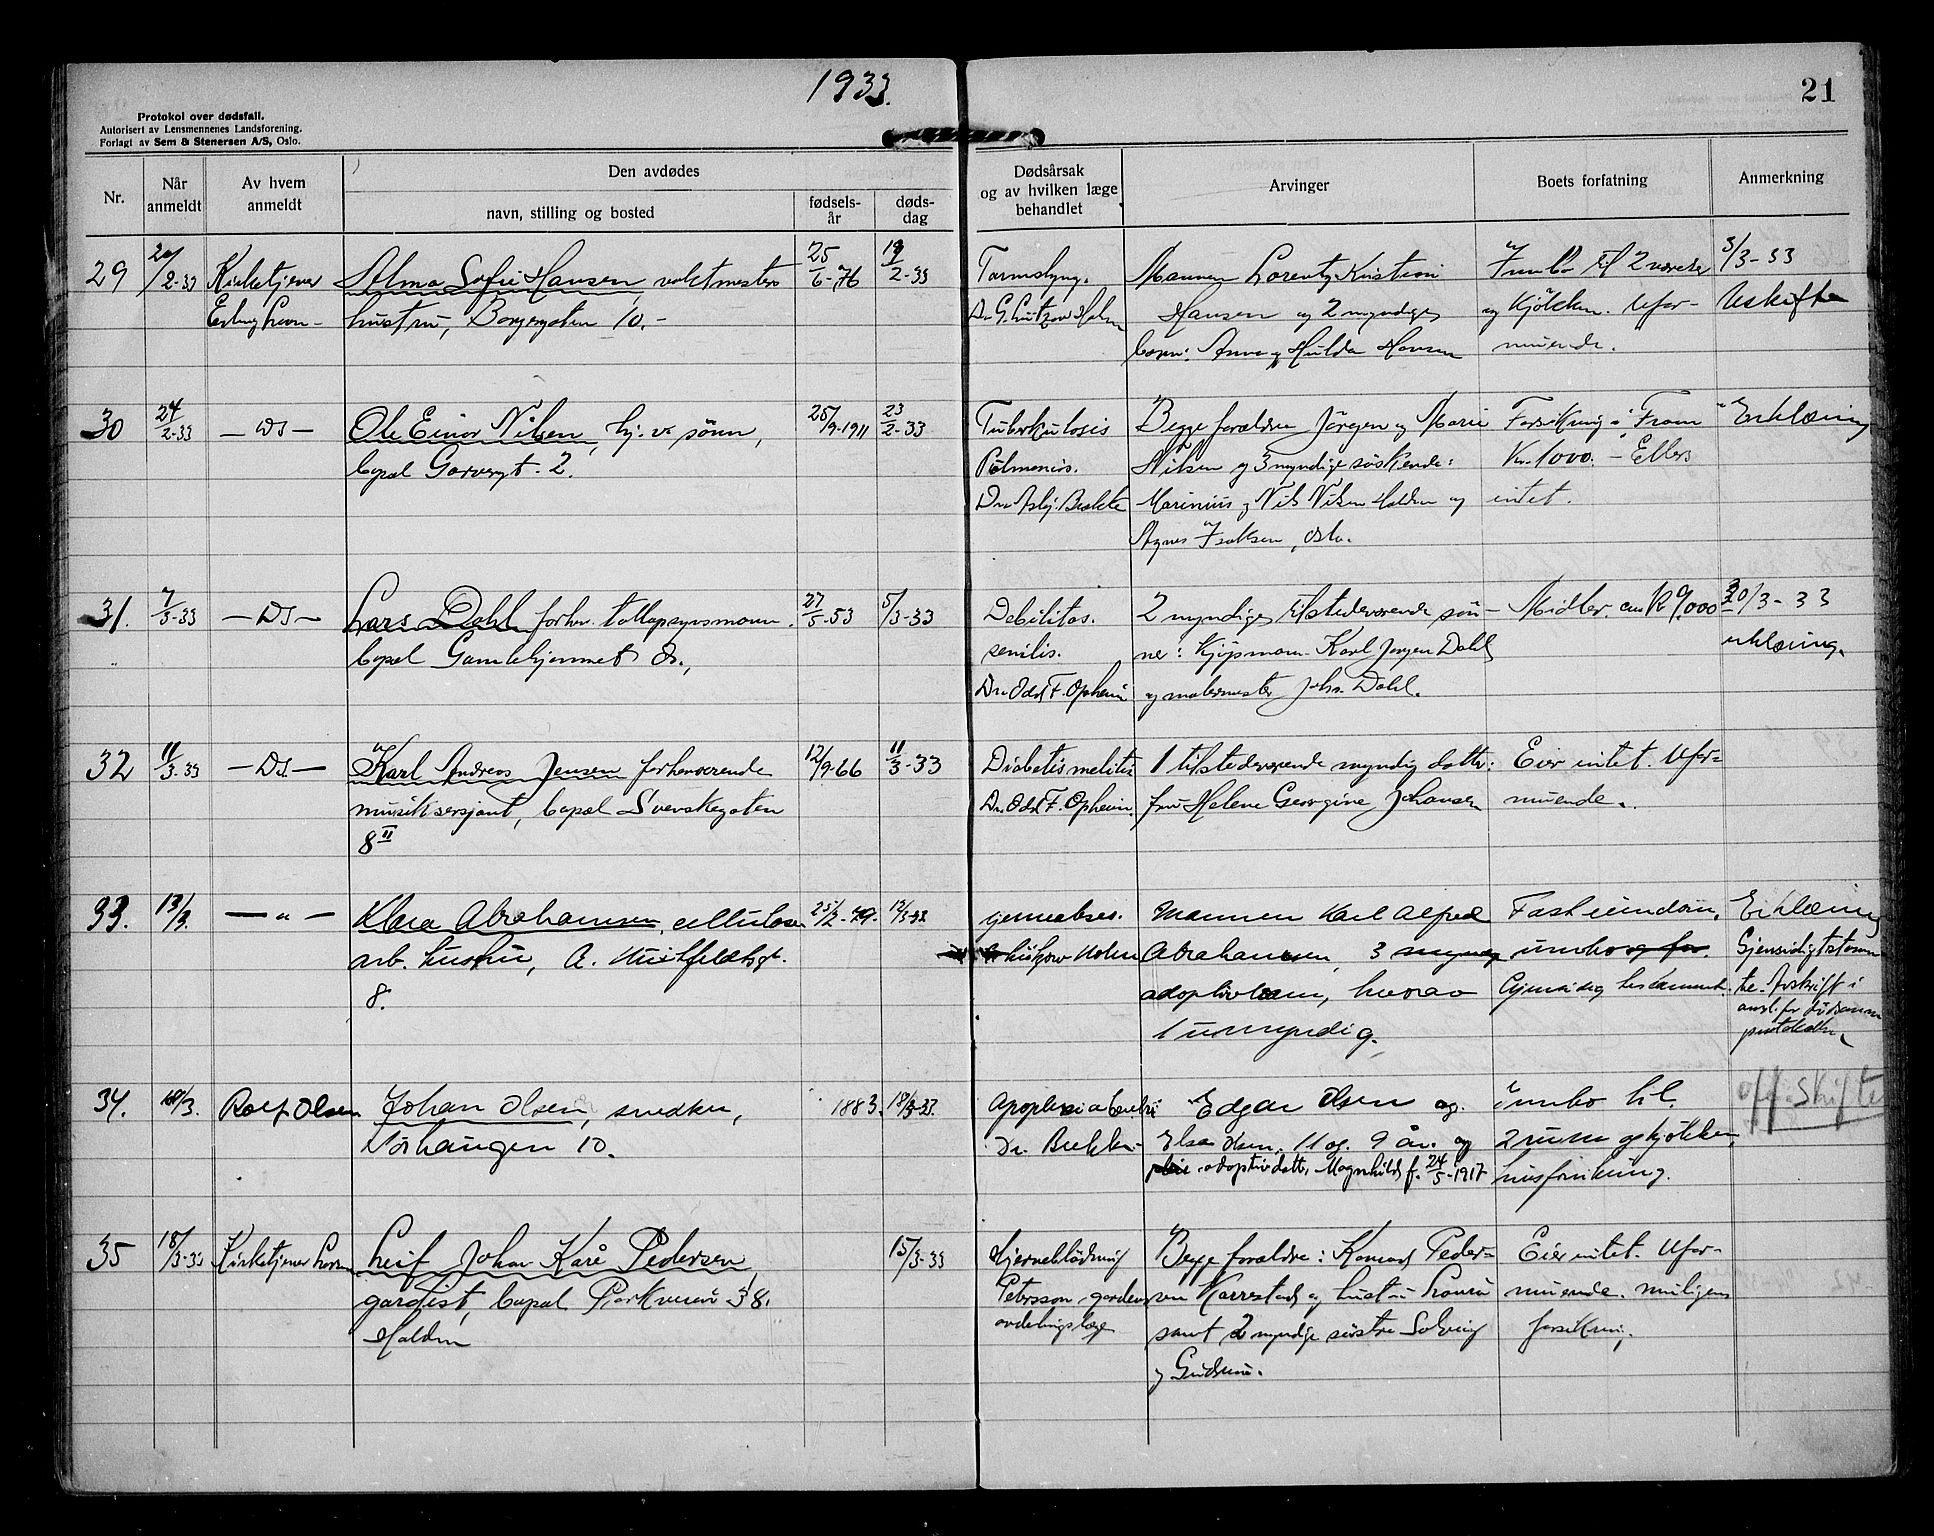 1933.
21
Protokol over dødsfall.
Autorisert av Lensmennenes Landsforening.
Forlagt av Sem & Stenersen A/S, Oslo.
Nr.
Når anmeldt
Av hvem anmeldt
Den avdødes
navn, stilling og bosted
fødsels-år
døds-dag
Dødsårsak og av hvilken læge behandlet
Arvinger
Boets forfatning
Anmerkning
29 /2-33 Kirketjener Alma Sofie Hansen, vaktmesters 25/6-76 /2-33
hustru, Borgergaten 10.-
Dr. G. Lützow Holm
Mannen Lorentz Kristian
Hansen og 2 myndige
børn: Anna og Hulda Hansen
Innbo til 2 værelser
og kjøkken. Ufor-
muende.
3/3-33
Uskifte
30 24/2-33 — Ds — Ole Einar Nilsen, hj.v. sønn, 25/9-1911 23/2-33
bopæl Garvergt. 2.
Tuberkulosis
Pulmonis.
Begge forældre Jørgen og Marie
Nilsen og 3 myndige søskende:
Marinius og Nils Nilsen Halden og
Agnes Isaksen, Oslo.
Forsikring i "Fram"
Kr. 1000. - Ellers
intet.
Erklæring
31. 7/3-33 — Ds — Lars Dahl forhv. tollopsynsmann. 27/5-53 5/3-33
bopæl Gamlehjemmet
Debilitas.
senilis.
Dr. Odd F. Opheim
2 myndige tilstedeværende søn-
ner: Kjøpmann Karl Jørgen Dahl
og malermester Johs. Dahl.
Midler ca Kr 9.000
20/3-33
erklæring.
32 11/3-33 — Ds. — Karl Andreas Jensen forhenværende 12/9-66 11/3-33
musiksersjant, bopæl Svenskegaten
8 II
Diabetis melitis
Dr. Odd F. Opheim.
1 tilstedeværende myndig datter:
fru Helene Georgine Johansen
Eier intet. Ufor-
muende.
33. 13/3. — " — Klara Abrahamsen, cellulose
arb. hustru, A. Huitfeldtsgt.
8.
Lützow Holm
Mannen Karl Alfred
Abrahamsen, 3
adoptivbarn, hvorav
1 umyndig.
Fast eiendom,
innbo og for.
Gjensidig testament.
Erklæring
Gjensidig testamen
te. Avskrift i
protokollen.
34. 18/3. Rolf Olsen Johan Olsen, snedker, 1883. 18/3-33.
Norhaugen 10.
Dr. Bukken
Edgar Olsen og.
Elsa Olsen, 11 og. 9 år. og
adoptivdatt. Magnhild f. 24/5-1917
innbo til.
2 rum og kjøkken
off. skifte
35 18/3-33 Kirketjener Leif Johan Kåre Pedersen 15/3-33
gardist, bopæl Parkveien 38.
Halden
Hjerneblødning
Petersson gardens
avdelingslæge
Begge forældre: Konrad Peder-
sen Karrestad og hustru Laura
samt 2 myndige søstre Solveig
og Gudrun.
Eier intet. Ufor-
muende. muligens
forsikring.